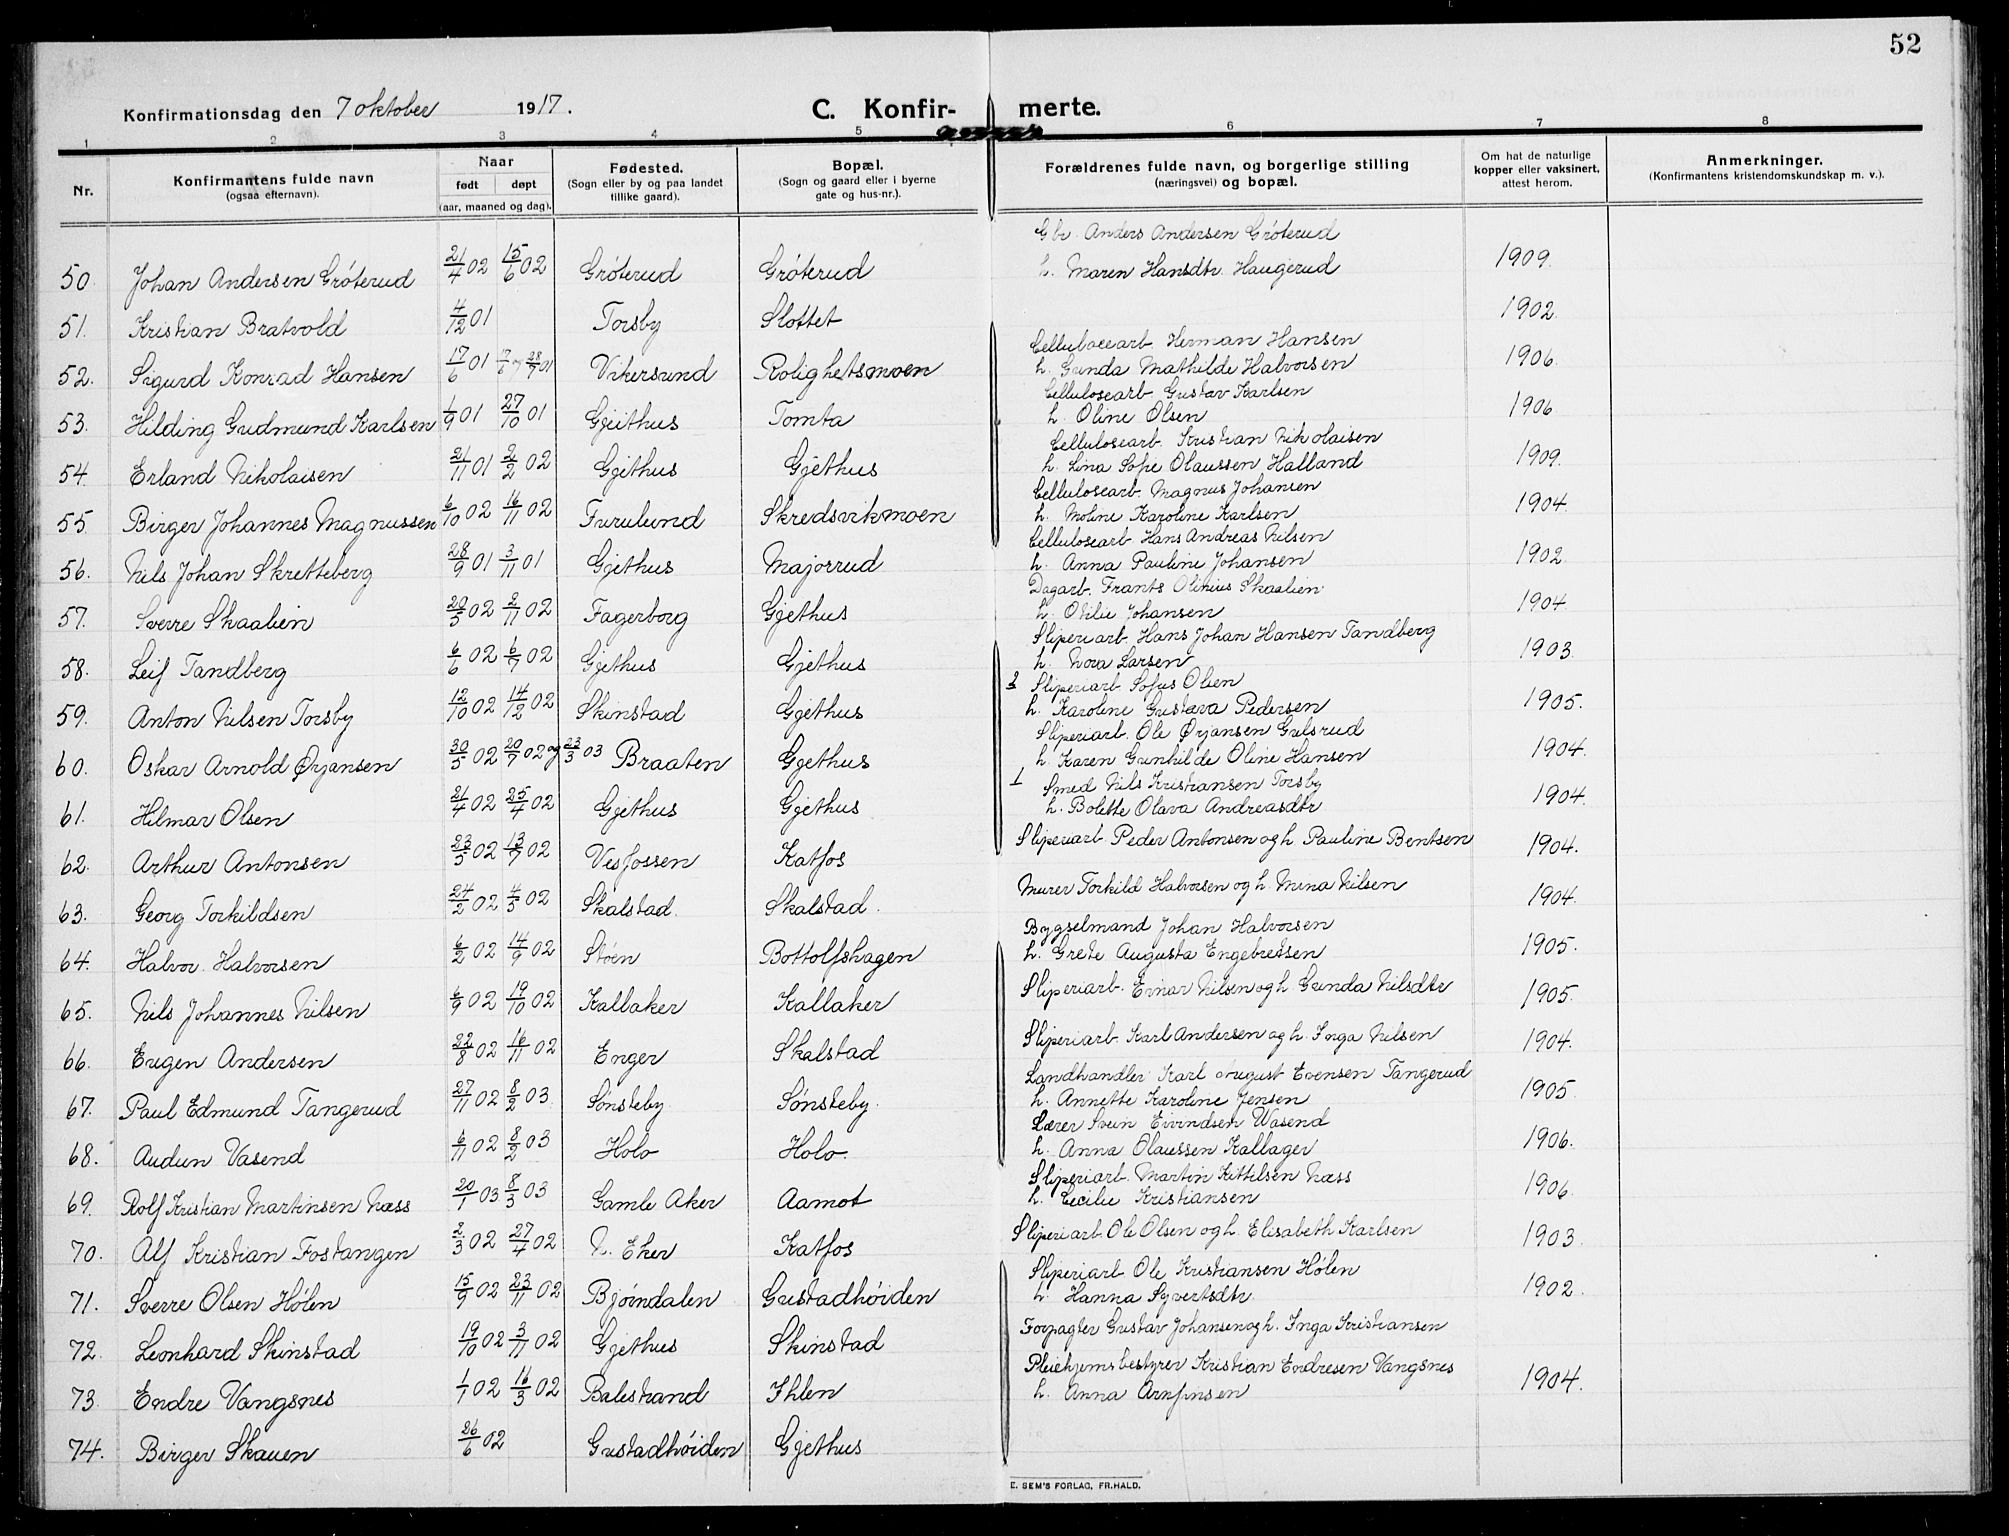 52
Konfirmationsdag den 7 oktober 1917.
C. Konfir- merte.
1 2 3 4 5 6 7 8
Nr.
Konfirmantens fulde navn
(ogsaa efternavn).
Naar
født døpt
(aar, maaned og dag).
Fødested.
(Sogn eller by og paa landet
tillike gaard).
Bopæl.
(Sogn og gaard eller i byerne
gate og hus-nr.).
Forældrenes fulde navn, og borgerlige stilling
(næringsvei) og bopæl.
Om hat de naturlige
kopper eller vaksinert,
attest herom.
Anmerkninger.
(Konfirmantens kristendomskundskap m. v.).
Gbr. Anders Andersen Gröterud
50. Johan Andersen Gröterud 21/4 02 15/6 02 Gröterud Gröterud h. Maren Hansdtr. Haugerud 1909.
51. Kristian Bratvold 4/12 01 Torsby Slottet 1902.
Cellulosearb. Herman Hansen
52. Sigurd Konrad Hansen 17/6 01 7/6 og 28/7 01 Vikersund Rolighetsmoen h. Gunda Mathilde Halvorsen 1906.
Cellulosearb. Gustav Karlsen
53. Hilding Gudmund Karlsen 1/9 01 27/10 01 Gjeithus Tomta h. Oline Olsen 1906
Cellulosearb. Kristian Nikolaisen
54. Erland Nikolaisen 21/11 01 2/2 02 Gjethus Gjethus h. Lina Sofie Olaussen Halland 1909.
Cellulosearb. Magnus Johansen
55. Birger Johannes Magnussen 6/10 02 16/11 02 Furulund Skredsvikmoen h. Moline Karoline Karlsen 1904.
Cellulosearb. Hans Andreas Nilsen
56. Nils Johan Skretteberg 28/9 01 3/11 01 Gjethus Majorrud h. Anna Pauline Johansen 1902.
Dagarb. Frants Olinius Skaalien
57. Sverre Skaalien 20/5 02 2/11 02 Fagerborg Gjethus h. Otilie Johansen 1904
Sliperiarb. Hans Johan Hansen Tandberg
58. Leif Tandberg 6/6 02 6/7 02 Gjethus Gjethus h. Nora Larsen 1903.
2 Sliperiarb. Sofus Olsen
59. Anton Nilsen Torsby 12/10 02 14/12 02 Skinstad Gjethus h. Karoline Gustava Pedersen 1905.
Sliperiarb. Ole Ørjansen Gulsrud
60. Oskar Arnold Ørjansen 30/5 02 20/7 02 og 23/3 03 Braaten Gjethus h. Karen Gunhilde Oline Hansen 1904.
1 Smed Nils Kristiansen Torsby
61. Hilmar Olsen 21/4 02 25/4 02 Gjethus Gjethus h. Bolette Olava Andreasdtr 1904.
62. Arthur Antonsen 23/5 02 13/7 02 Vesfossen Katfos Sliperiarb. Peder Antonsen og h. Pauline Bentsen 1904.
63. Georg Torkildsen 24/2 02 4/5 02 Skalstad. Skalstad. Murer Torkild Halvorsen og h. Mina Nilsen 1904.
Bygselmand Johan Halvorsen
64. Halvor Halvorsen 6/2 02 14/9 02 Stöen Bottolfshagen h. Grete Augusta Engebretsen 1905.
65. Nils Johannes Nilsen 6/9 02 19/10 02 Kallaker Kallaker Sliperiarb. Einar Nilsen og h. Gunda Nilsdtr 1905.
66. Eugen Andersen 22/8 02 16/11 02 Enger Skalstad Sliperiarb. Karl Andersen og h. Inga Nilsen 1904.
Landhandler Karl August Evensen Tangerud
67. Paul Edmund Tangerud 27/11 02 8/2 03. Sønsteby Sønsteby. h. Annette Karoline Jensen 1905.
Lærer Svein Eivindsen Vasend
68. Audun Vasend 6/11 02 8/2 03 Holo Holo. h. Anna Olaussen Kallager 1906.
Sliperiarb. Martin Kittilsen Næss
69. Rolf Kristian Martinsen Næss 20/1 03. 8/3 03 Gamle Aker Aamot h. Cecilie Kristiansen 1906.
70. Alf Kristian Fostangen 2/3 02 27/4 02 N. Eker Katfos Sliperiarb. Ole Olsen og h. Elisabeth Karlsen 1903.
Sliperiarb. Ole Kristiansen Hólen
71. Sverre Olsen Hólen 15/9 02 23/11 02 Bjöindalen Gustadhöiden h. Hanna Syvertsdtr. 1902.
72. Leonhard Skinstad 19/10 02 3/11 02 Gjethus Skinstad Forpagter Gustav Johansen og h. Inga Kristiansen
Pleiehjemsbestyrer Kristian Endresen Vangsnes
73. Endre Vangsnes 1/1 02 16/3 02 Balestrand Ihlen h. Anna Arnfinsen 1904.
74. Birger Skauen 26/6 02 Gustadhöiden Gjethus
E. SEM'S FORLAG, FR.HALD.